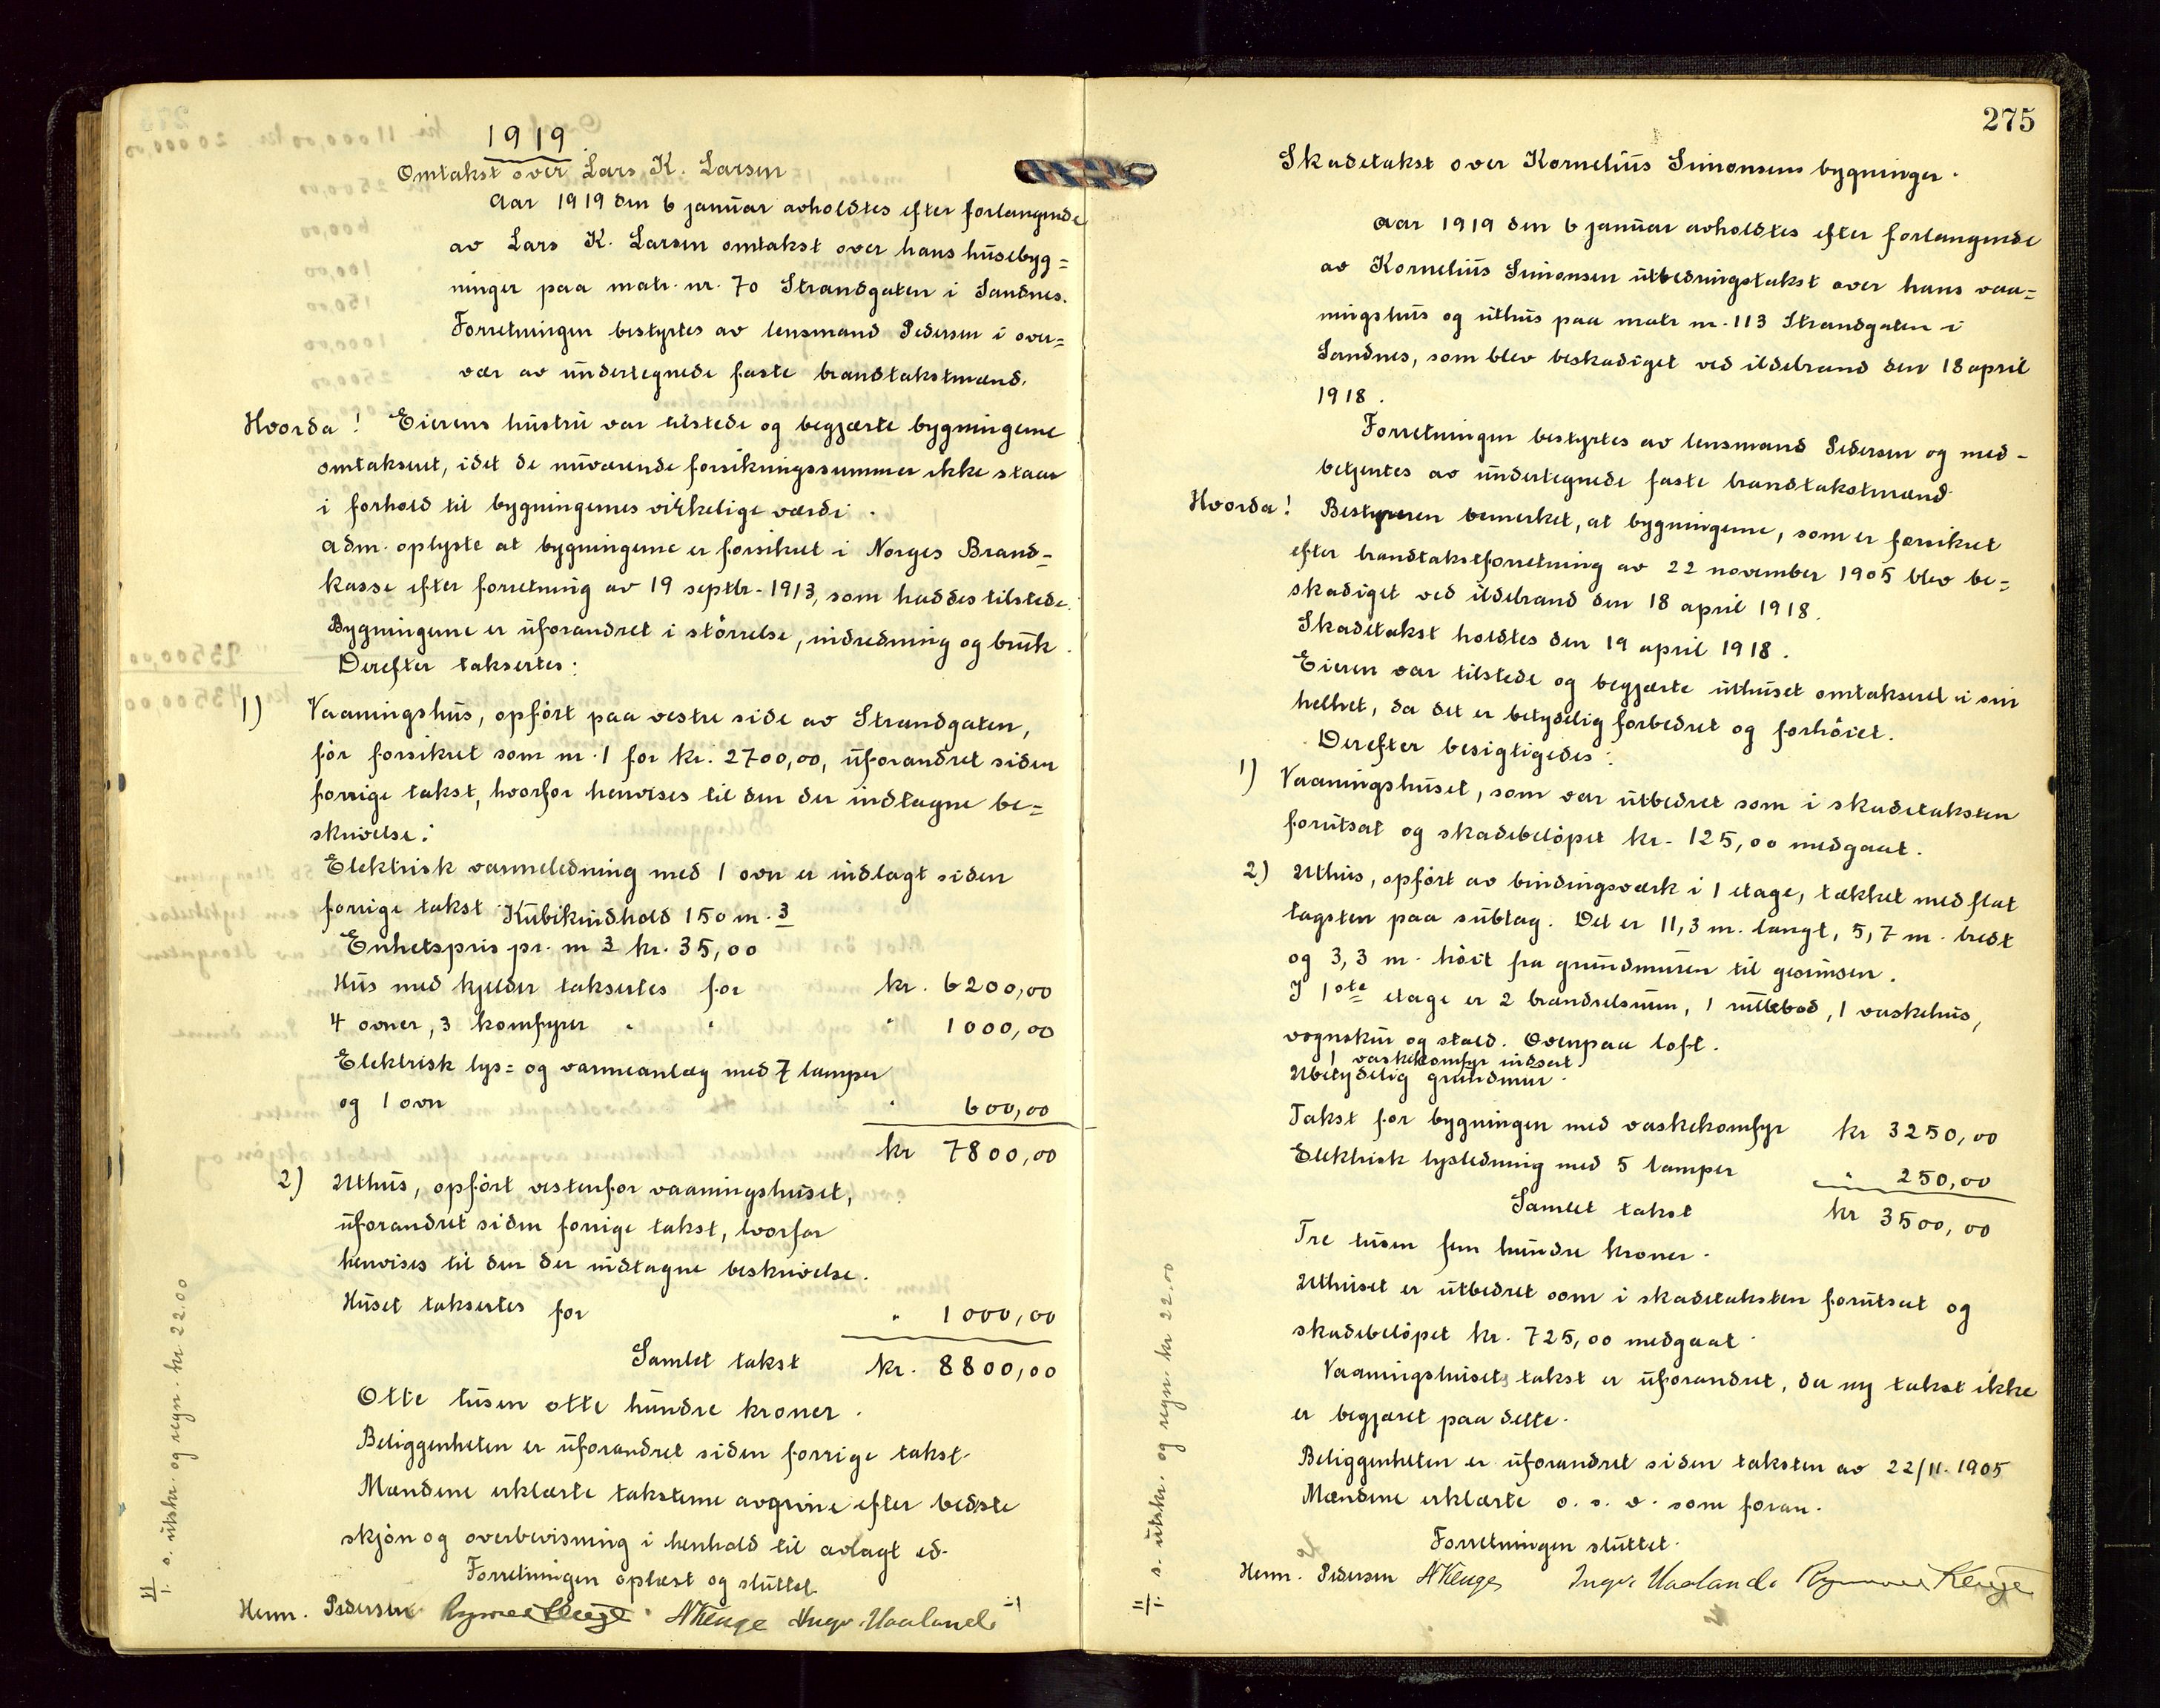 1919
Omtakst over Lars K. Larsen
Aar 1919 den 6 januar avholdtes efter forlangende
av Lars K. Larsen omtakst over hans husebyg=
ninger paa matr. nr. 70 Strandgaten i Sandnes.
Forretningen bestyrtes av lensmand Pedersen i over=
vær av undertegnede faste brandtakstmænd.
Hvorda! Eierens hustru var tilstede og begjærte bygningerne
omtakseret, idet de nuværende forsikringssummer ikke staar
i forhold til bygningernes virkelige værdi.
Adm. oplyste at bygningerne er forsikret i Norges Brand=
kasse efter forretning av 19 septbr. 1913, som haddes tilstede.
Bygningerne er uforandret i størrelse, indredning og bruk.
Derefter taksertes:
1) Vaaningshus, opført paa vestre side av Strandgaten,
før forsikret som nr. 1 for kr. 2700,00, uforandret siden
forrige takst, hvorfor henvises til den der indtagne be=
skrivelse:
Elektrisk varmeledning med 1 ovn er indlagt siden
forrige takst. Kubikindhold 150 m. 3
Enhetspris pr. m 3 kr. 35,00
Hus med kjelder taksertes for kr. 6200,00
4 ovner, 3 komfyrer " " " 1000,00
Elektrisk lys= og varmeanlæg med 7 lamper
og 1 ovn " 600,00
kr 7800,00
2) Uthus, opført vestenfor vaaningshuset,
uforandret siden forrige takst, hvorfor
henvises til den der indtagne beskrivelse.
Huset taksertes for " 1000,00
Samlet takst kr. 8800,00
Otte tusen otte hundre kroner.
Beliggenheten er uforandret siden forrige takst.
Mændene erklærte taksterne avgivne efter bedste
skjøn og overbevisning i henhold til avlagt ed.
Forretningen oplæst og sluttet.
Herm. Pedersen A Kenge Ingv. Haaland
s. utskr. og regn. kr 22.00
275
Skadetakst over Kornelius Simonsens bygninger.
Aar 1919 den 6 januar avholdtes efter forlangende
av Kornelius Simonsen utbedringstakst over hans vaa=
ningshus og uthus paa matr nr. 113 Strandgaten i
Sandnes, som blev beskadiget ved ildebrand den 18 april
1918.
Forretningen bestyrtes av lensmand Pedersen og med-
betjentes av undertegnede faste brandtakstmænd.
Hvorda! Bestyreren bemerket, at bygningerne, som er forsikret
efter brandtakstforretning av 22 november 1905 blev be=
skadiget ved ildebrand den 18 april 1918.
Skadetakst holdtes den 19 april 1918.
Eieren var tilstede og begjærte uthuset omtakseret i sin
helhet, da det er betydelig forbedret og forhøiet.
Derefter besigtigedes:
1) Vaaningshuset, som var utbedret som i skadetaksten
forutsat og skadebeløpet kr. 125,00 medgaat.
2) Uthus, opført av bindingsværk i 1 etage, tækket med flat
tagsten paa subtag. Det er 11,3 m. langt, 5,7 m. bredt
og 3,3 m. høit fra grundmuren til gesimsen.
I 1ste etage er 2 brændselsrum, 1 rullebod, 1 vaskehus,
vognskur og stald. Ovenpaa loft.
1 vaskekomfyr indsat
Ubetydelig grundmur.
Takst for bygningen med vaskekomfyr kr 3250,00
Elektrisk lysledning med 5 lamper " 250,00
Samlet takst kr 3500,00
Tre tusen fem hundre kroner.
Uthuset er utbedret som i skadetaksten forutsat og
skadebeløpet kr. 725,00 medgaat.
Vaaningshusets takst er uforandret, da ny takst ikke
er begjæret paa dette.
Beliggenheten er uforandret siden taksten av 22/11. 1905
Mændene erklærte o. s. v. som foran.
Forretningen sluttet.
Herm. Pedersen A Kenge Ingv. Haaland
s. utskr. og regn. kr 22.00